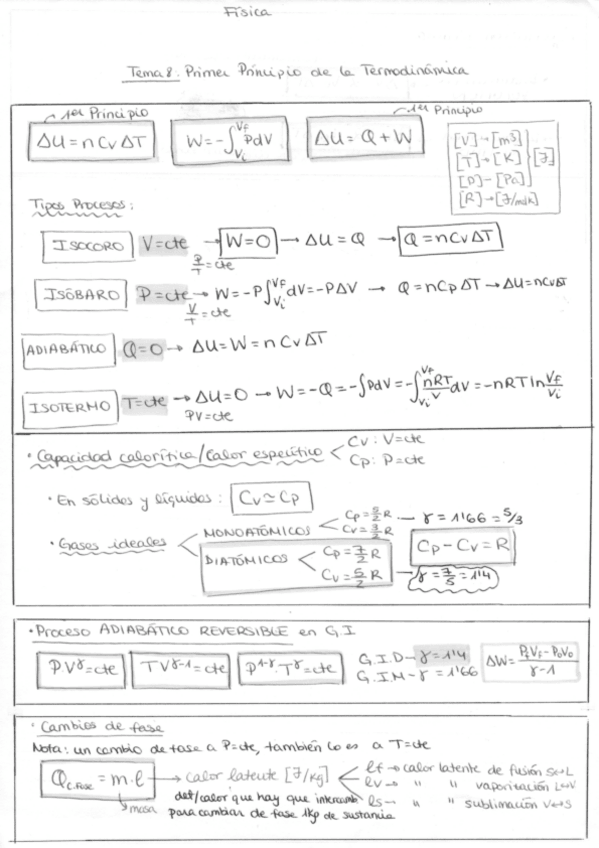 Física
Tema 8: Primer Principio de la Termodinámica
1er Principio
1er Principio
ΔU = n Cv ΔT
W = -∫Vi Vf PdV
ΔU = Q + W
[V] → [m³]
[T] → [K]
[P] - [Pa]
[R] → [J/molK]
[J]
Tipos Procesos:
ISOCORO V = cte → W = 0 → ΔU = Q → Q = n Cv ΔT
P/T = cte
ISÓBARO P = cte → W = -P∫Vi Vf dV = -PΔV → Q = n Cp ΔT → ΔU = nCvΔT
V/T = cte
ADIABÁTICO Q = 0 → ΔU = W = n Cv ΔT
ISOTERMO T = cte → ΔU = 0 → W = -Q = -∫PdV = -∫Vi Vf nRT/V dV = -nRT ln Vf/Vi
PV = cte
· Capacidad calorífica/Calor específico < Cv: V = cte
Cp: P = cte
· En sólidos y líquidos: Cv ≃ Cp
· Gases ideales < MONOATÓMICOS < Cp = 5/2 R
Cv = 3/2 R — γ = 1'66 = 5/3
Cp - Cv = R
DIATÓMICOS < Cp = 7/2 R
Cv = 5/2 R → γ = 7/5 = 1'4
· Proceso ADIABÁTICO REVERSIBLE en G.I
PVᵞ = cte
TVᵞ⁻¹ = cte
P¹⁻ᵞ·Tᵞ = cte
G.I.D - γ = 1'4
G.I.M - γ = 1'66
ΔW = PfVf - P0V0 / γ-1
· Cambios de fase
Nota: un cambio de fase a P = cte, también lo es a T = cte
Q c.Fase = m · l → calor latente [J/kg] < lf → calor latente de fusión S↔L
lv → " " vaporización L↔V
ls → " " sublimación V↔S
masa
def/calor que hay que intercamb
para cambiar de fase 1kg de sustancia